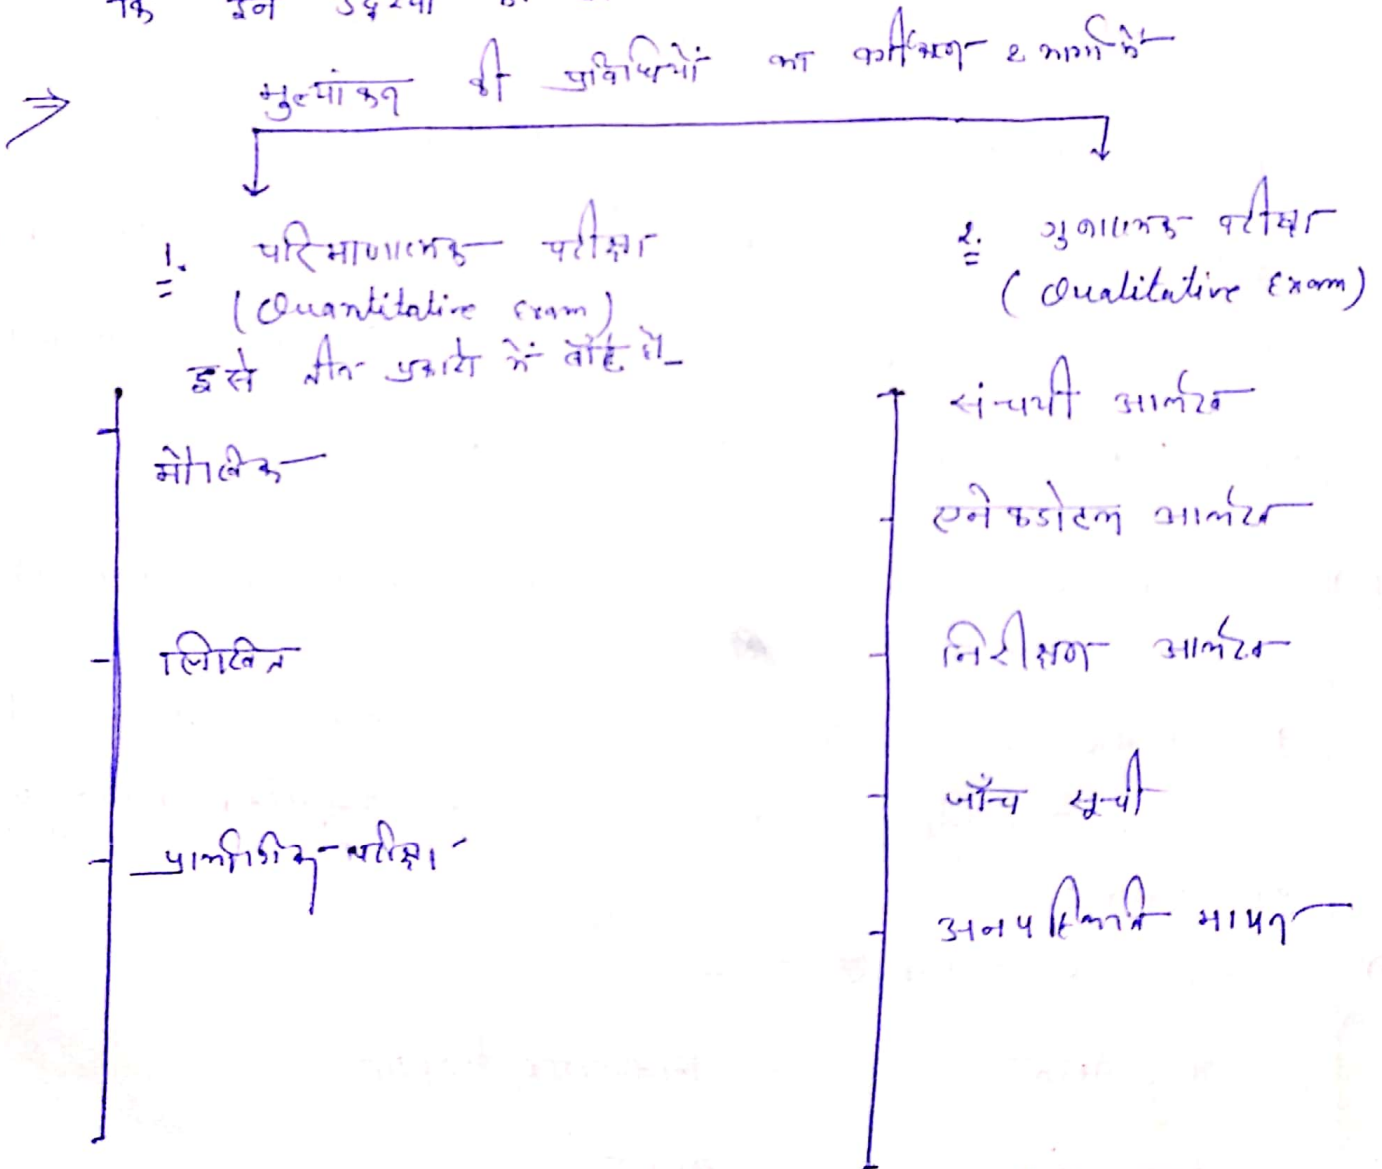 कि इन उद्देश्यों
⇒ मुल्यांकन की प्रविधियों का वर्गीकरण 2 भागों में
1. परिमाणात्मक परीक्षा
(Quantitative Exam)
इसे तीन प्रकारों में बाँटे है
मौखिक
लिखित
प्रायोगिक परीक्षा
2. गुणात्मक परीक्षा
(Qualitative Exam)
संचयी आलेख
एनेकडोटल आलेख
निरीक्षण आलेख
जाँच सूची
मापन